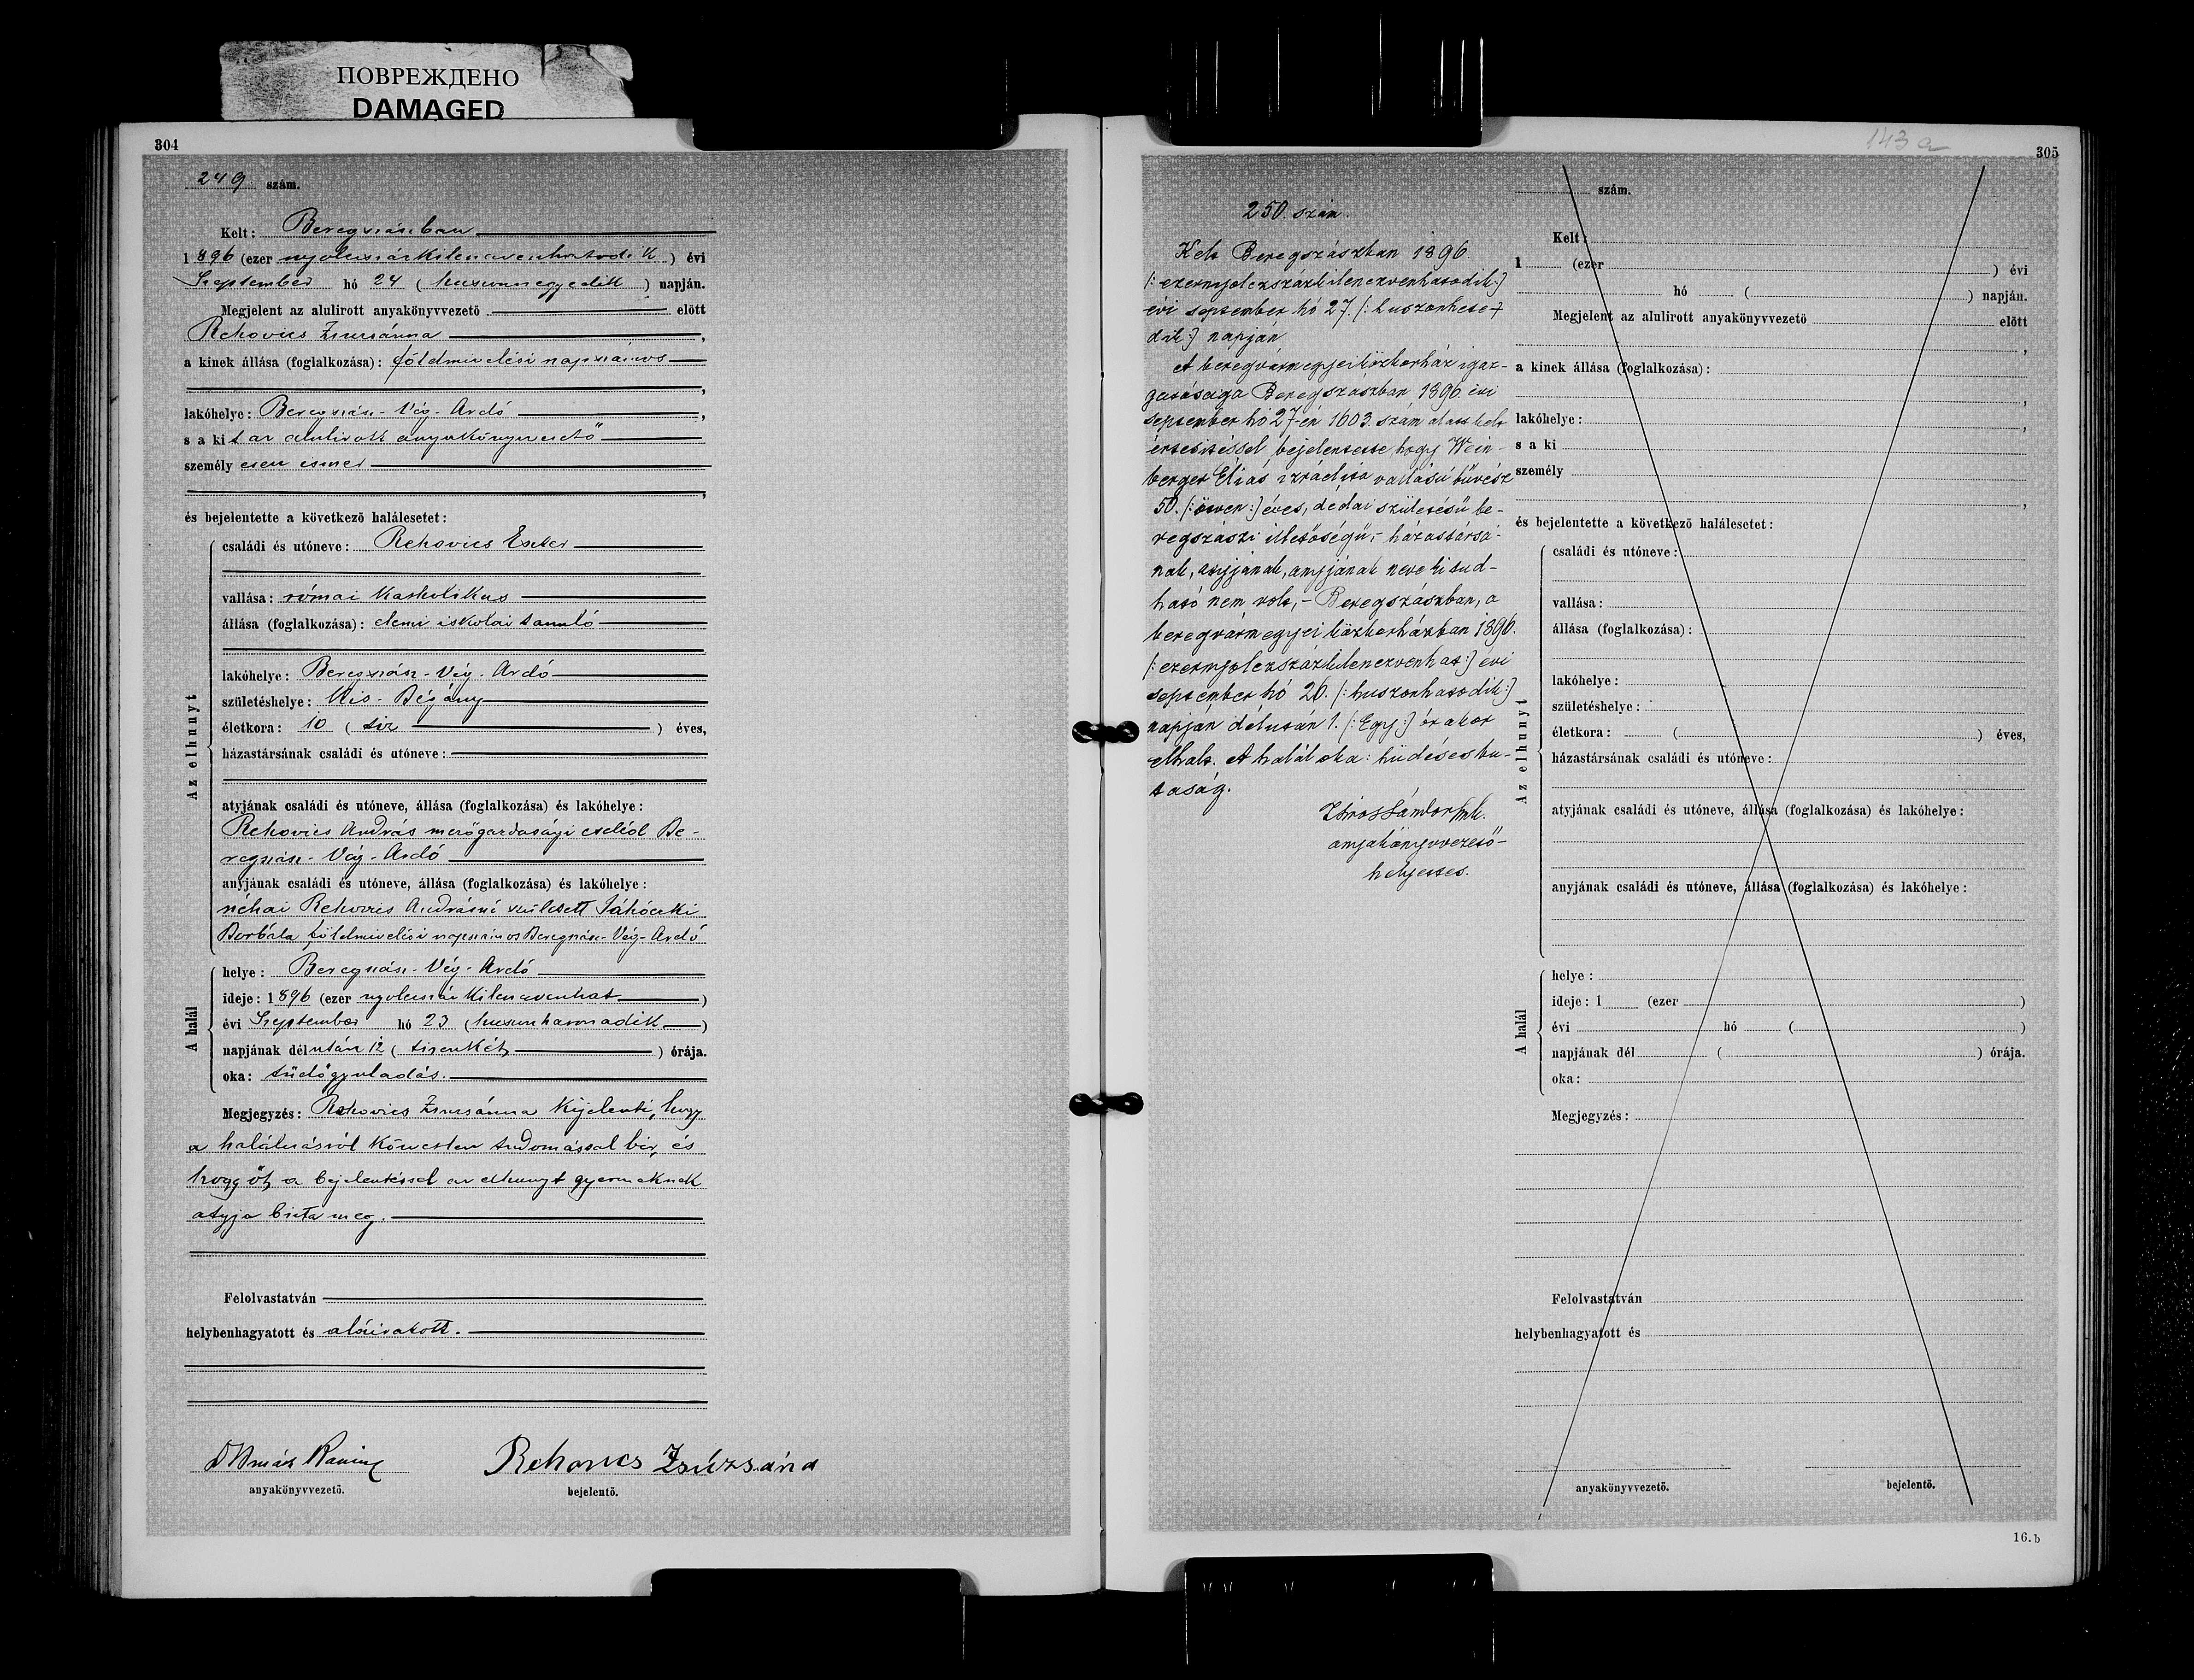 ПОВРЕЖДЕНО
DAMAGED
304
249 szám.
Kelt: Beregszászban
1896 (ezer nyolcszázkilencvenhatodik) évi
Szeptember hó 24 (huszonnegyedik) napján.
Megjelent az alulirott anyakönyvvezető előtt
Rehovics Zsuzsánna,
a kinek állása (foglalkozása): földmivelési napszámos
,
lakóhelye: Beregszász-Vég-Ardó,
s a kit az alulirott anyakönyvvezető
személyesen ismer
,
és bejelentette a következő halálesetet:
Az elhunyt
családi és utóneve: Rehovics Eszter
vallása: római katholikus
állása (foglalkozása): elemi iskolai tanuló
lakóhelye: Beregszász-Vég-Ardó
születéshelye: Kis-Bégány
életkora: 10 (tiz) éves,
házastársának családi és utóneve:
atyjának családi és utóneve, állása (foglalkozása) és lakóhelye:
Rehovics András mezőgazdasági cseléd Be-
regszász-Vég-Ardó
anyjának családi és utóneve, állása (foglalkozása) és lakóhelye:
néhai Rehovics Andrásné született
Borbála földmivelési napszámos Beregszász-Vég-Ardó
A halál
helye: Beregszász-Vég-Ardó
ideje: 1896 (ezer nyolcszázkilencvenhat)
évi Szeptember hó 23 (huszonharmadik)
napjának délután 12 (tizenkét) órája.
oka: tüdőgyuladás.
Megjegyzés: Rehovics Zsuzsánna kijelenti, hogy
a halálozásról közvetlen tudomással bir, és
hogy őt a bejelentéssel az elhunyt gyermeknek
atyja bizta meg.
Felolvastatván
helybenhagyatott és aláiratott.
Rehovics Zsúzsána
anyakönyvvezető.
bejelentő.
143a
305
250. szám.
Kelt Beregszászban 1896.
(:ezernyolczszázkilenczvenhatodik:)
évi september hó 27. (:huszonhete-
dik:) napján
A beregvármegyei közkorház igaz-
gatósága Beregszászban 1896. évi
september hó 27-én 1603. szám alatt kelt
értesitéssel bejelentette hogy Wein-
berger Éliás izraelita vallású bűvész
50. (:ötven:) éves, dédai születésü be-
regszászi illetőségű, – házastársá-
nak, atyjának, anyjának neve kitud-
ható nem volt, – Beregszászban, a
beregvármegyei közkorházban 1896.
(:ezernyolczszázkilenczvenhat:) évi
september hó 26. (:huszonhatodik:)
napján délután 1. (:Egy:) órakor
elhalt. A halál oka: hüdéses bu-
taság.
Sándor s.k.
anyakönyvvezető-
helyettes.
szám.
Kelt:
1 (ezer ) évi
hó ( ) napján.
Megjelent az alulirott anyakönyvvezető előtt
,
a kinek állása (foglalkozása):
,
lakóhelye: ,
s a ki
személy
,
és bejelentette a következő halálesetet:
Az elhunyt
családi és utóneve:
vallása:
állása (foglalkozása):
lakóhelye:
születéshelye:
életkora: ( ) éves,
házastársának családi és utóneve:
atyjának családi és utóneve, állása (foglalkozása) és lakóhelye:
anyjának családi és utóneve, állása (foglalkozása) és lakóhelye:
A halál
helye:
ideje: 1 (ezer )
évi hó ( )
napjának dél ( ) órája.
oka:
Megjegyzés:
Felolvastatván
helybenhagyatott és
anyakönyvvezető.
bejelentő.
16.b